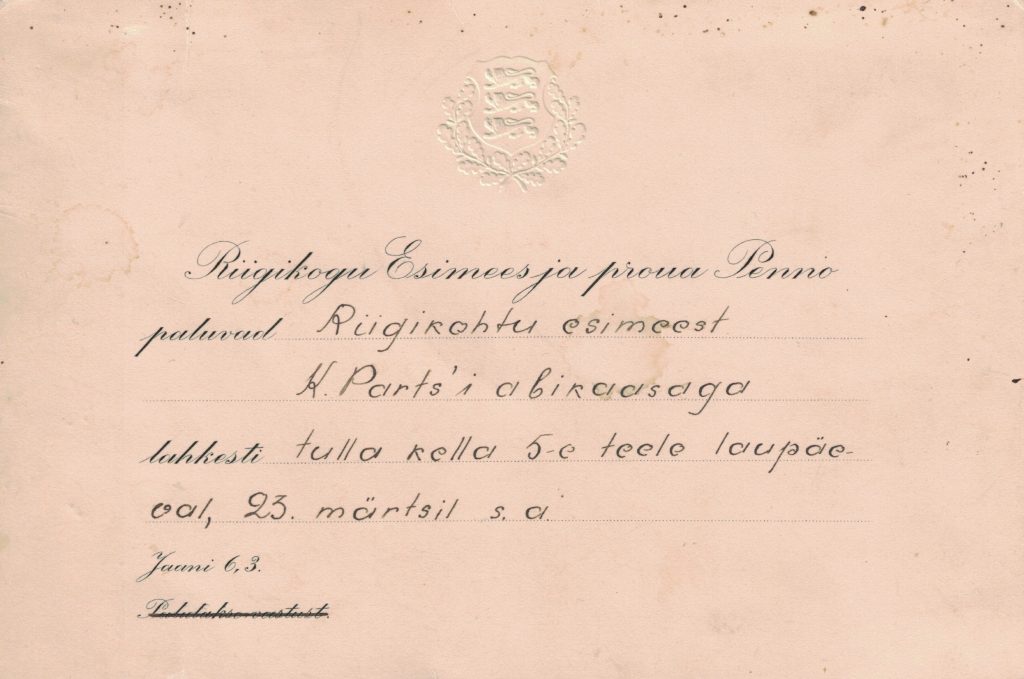 Riigikogu Esimees ja proua Penno
paluvad Riigikohtu esimeest
K. Parts'i abikaasaga
lahkesti tulla kella 5-e teele laupäe-
val, 23. märtsil s. a.
Jaani 6, 3.
Palutakse vastust.